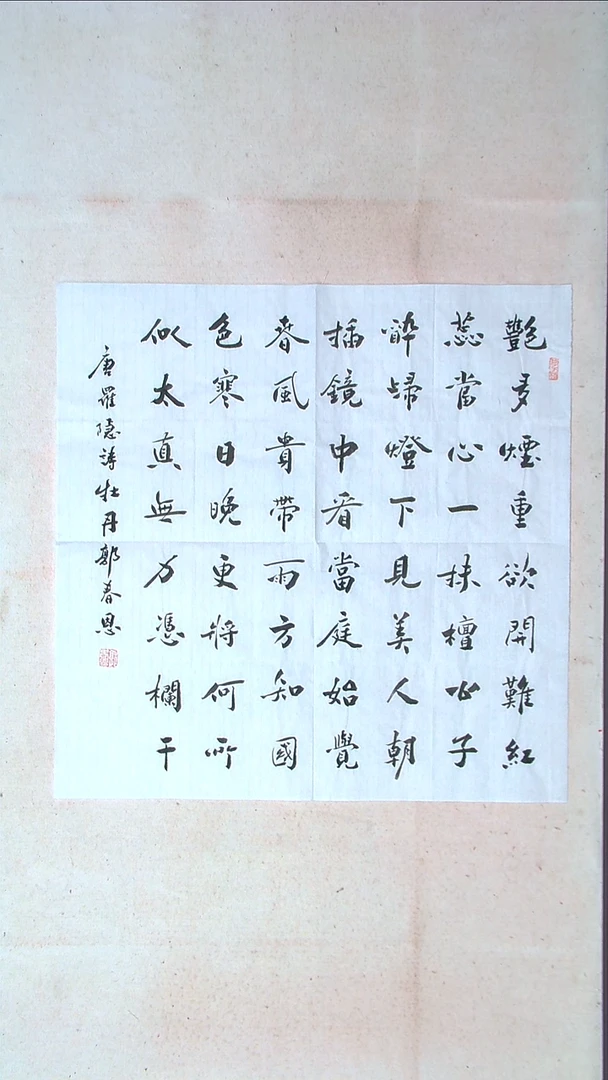 艷多煙重欲開難紅
蕊當心一抹檀公子
醉歸燈下見美人朝
插鏡中看當庭始覺
春風貴帶雨方知國
色寒日晚更將何所
似太真無力憑欄干
唐羅隱詩牡丹郭春恩